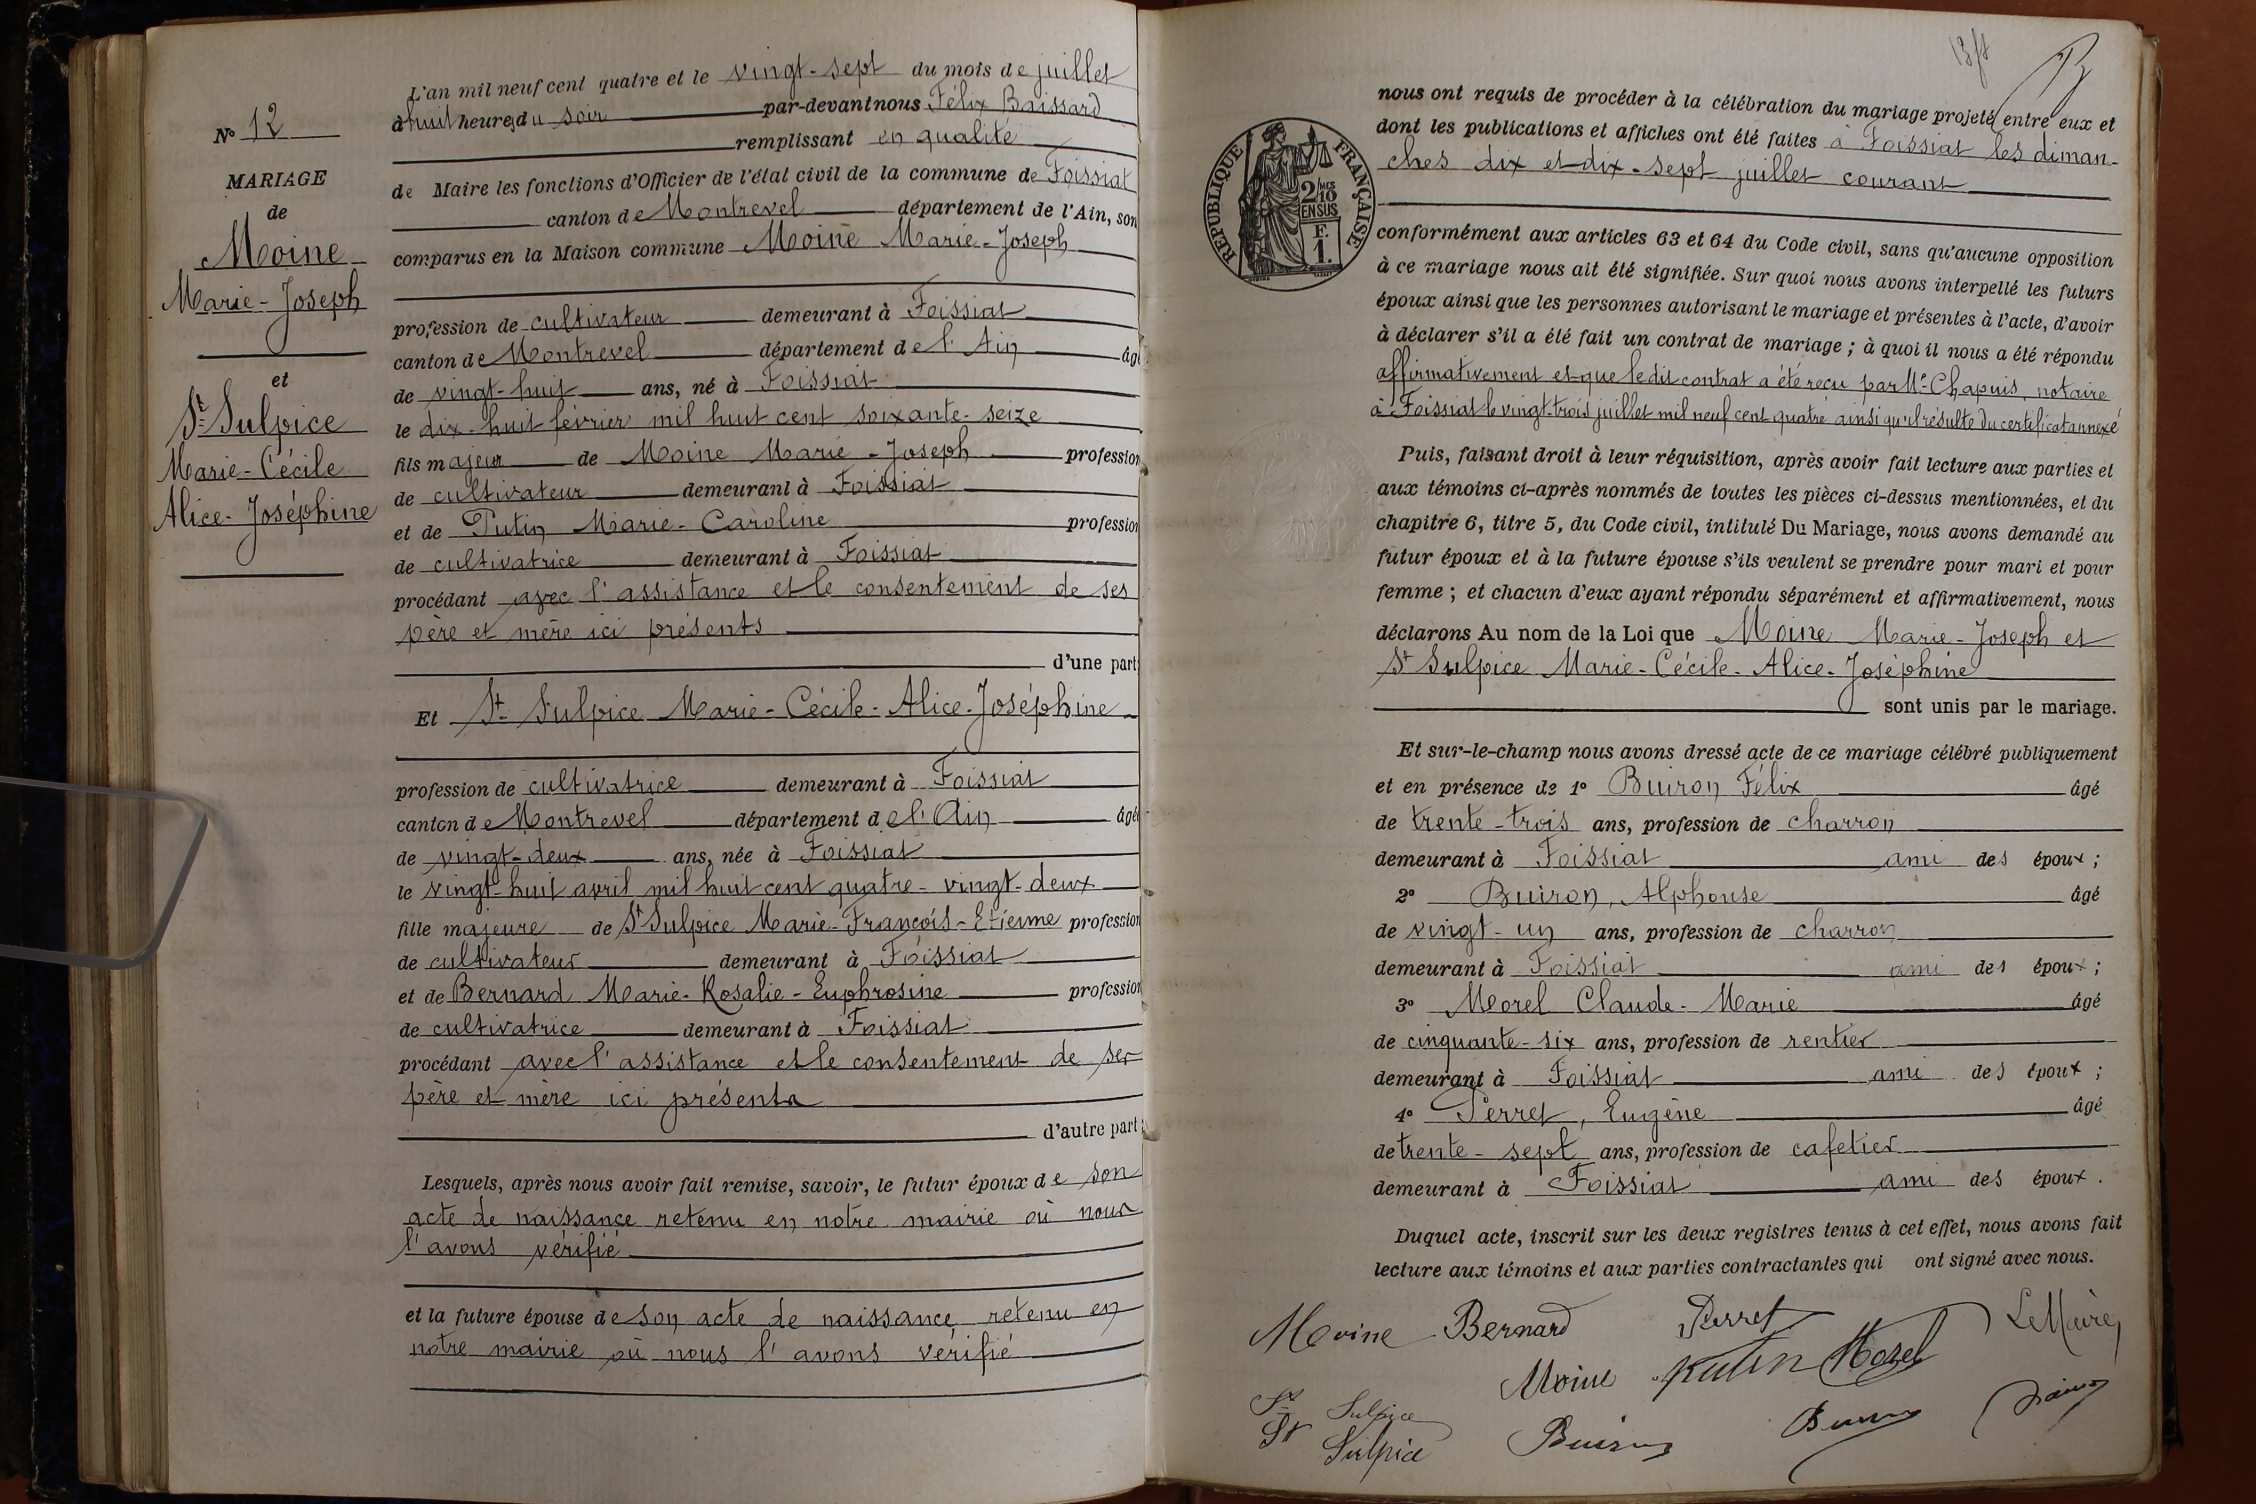 N° 12
MARIAGE
de
Moine
Marie-Joseph
et
St Sulpice
Marie-Cécile
Alice-Joséphine
L'an mil neuf cent quatre et le vingt-sept du mois de juillet
à huit heures du soir par-devant nous Félix Baissard
remplissant en qualité
de Maire les fonctions d'Officier de l'état civil de la commune de Foissiat
canton de Montrevel département de l'Ain, son
comparus en la Maison commune Moine Marie-Joseph
profession de cultivateur demeurant à Foissiat
canton de Montrevel département de l'Ain âgé
de vingt-huit ans, né à Foissiat
le dix-huit février mil huit cent soixante-seize
fils majeur de Moine Marie-Joseph profession
de cultivateur demeurant à Foissiat
et de Putin Marie-Caroline profession
de cultivatrice demeurant à Foissiat
procédant avec l'assistance et le consentement de ses
père et mère ici présents
d'une part
Et St Sulpice Marie-Cécile-Alice-Joséphine
profession de cultivatrice demeurant à Foissiat
canton de Montrevel département de l'Ain âgée
de vingt-deux ans, née à Foissiat
le vingt-huit avril mil huit cent quatre-vingt-deux
fille majeure de St Sulpice Marie-François-Etienne profession
de cultivateur demeurant à Foissiat
et de Bernard Marie-Rosalie-Euphrosine profession
de cultivatrice demeurant à Foissiat
procédant avec l'assistance et le consentement de ses
père et mère ici présents
d'autre part;
Lesquels, après nous avoir fait remise, savoir, le futur époux de son
acte de naissance retenu en notre mairie où nous
l'avons vérifié
et la future épouse de son acte de naissance retenu en
notre mairie où nous l'avons vérifié
nous ont requis de procéder à la célébration du mariage projeté entre eux et
dont les publications et affiches ont été faites à Foissiat les diman-
ches dix et dix-sept juillet courant
RÉPUBLIQUE FRANÇAISE
2/10 MES
EN SUS
F.
1.
conformément aux articles 63 et 64 du Code civil, sans qu'aucune opposition
à ce mariage nous ait été signifiée. Sur quoi nous avons interpellé les futurs
époux ainsi que les personnes autorisant le mariage et présentes à l'acte, d'avoir
à déclarer s'il a été fait un contrat de mariage ; à quoi il nous a été répondu
affirmativement et que ledit contrat a été reçu par Me Chapuis, notaire
à Foissiat le vingt-trois juillet mil neuf cent quatre ainsi qu'il résulte du certificat annexé
Puis, faisant droit à leur réquisition, après avoir fait lecture aux parties et
aux témoins ci-après nommés de toutes les pièces ci-dessus mentionnées, et du
chapitre 6, titre 5, du Code civil, intitulé Du Mariage, nous avons demandé au
futur époux et à la future épouse s'ils veulent se prendre pour mari et pour
femme ; et chacun d'eux ayant répondu séparément et affirmativement, nous
déclarons Au nom de la Loi que Moine Marie-Joseph et
St Sulpice Marie-Cécile-Alice-Joséphine
sont unis par le mariage.
Et sur-le-champ nous avons dressé acte de ce mariage célébré publiquement
et en présence de 1° Buiron Félix âgé
de trente-trois ans, profession de charron
demeurant à Foissiat ami des époux ;
2° Buiron, Alphonse âgé
de vingt-un ans, profession de charron
demeurant à Foissiat ami des époux ;
3° Morel Claude-Marie âgé
de cinquante-six ans, profession de rentier
demeurant à Foissiat ami des époux ;
4° Perret, Eugène âgé
de trente-sept ans, profession de cafetier
demeurant à Foissiat ami des époux.
Duquel acte, inscrit sur les deux registres tenus à cet effet, nous avons fait
lecture aux témoins et aux parties contractantes qui ont signé avec nous.
Moine Bernard Perret Le Maire,
Moine Putin Morel
St Sulpice
St Sulpice Buiron